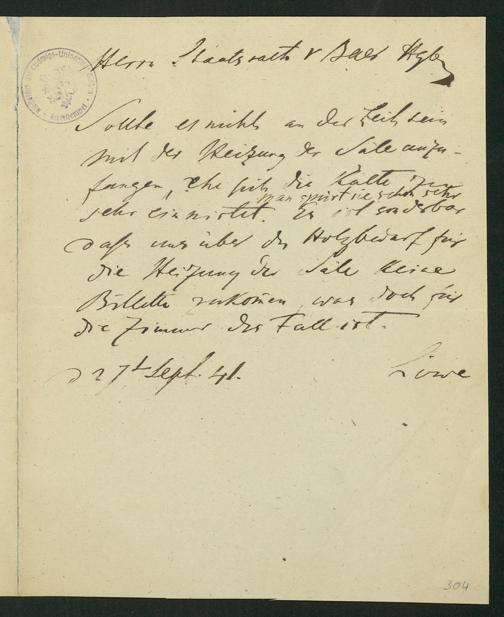 Herrn Staatsrath v Baer
Sollte es nicht an der Zeit sein
mit der Heizung der Säle anzu-
fangen, ehe sich die Kälte zu
man spürt sie schon sehr
sehr einnistet. Es ist sonderbar
daß uns über den Holzbedarf für
die Heizung der Säle keine
Billette zukom̄en, was doch für
die Zimmer der Fall ist.
d 27t Sept. 41.
Löwe
304